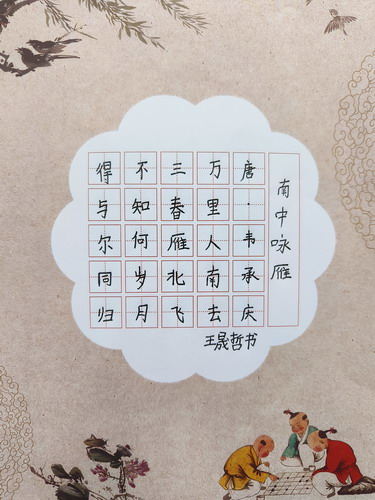 南中咏雁
唐·韦承庆
万里人南去
三春雁北飞
不知何岁月
得与尔同归
王晟哲书